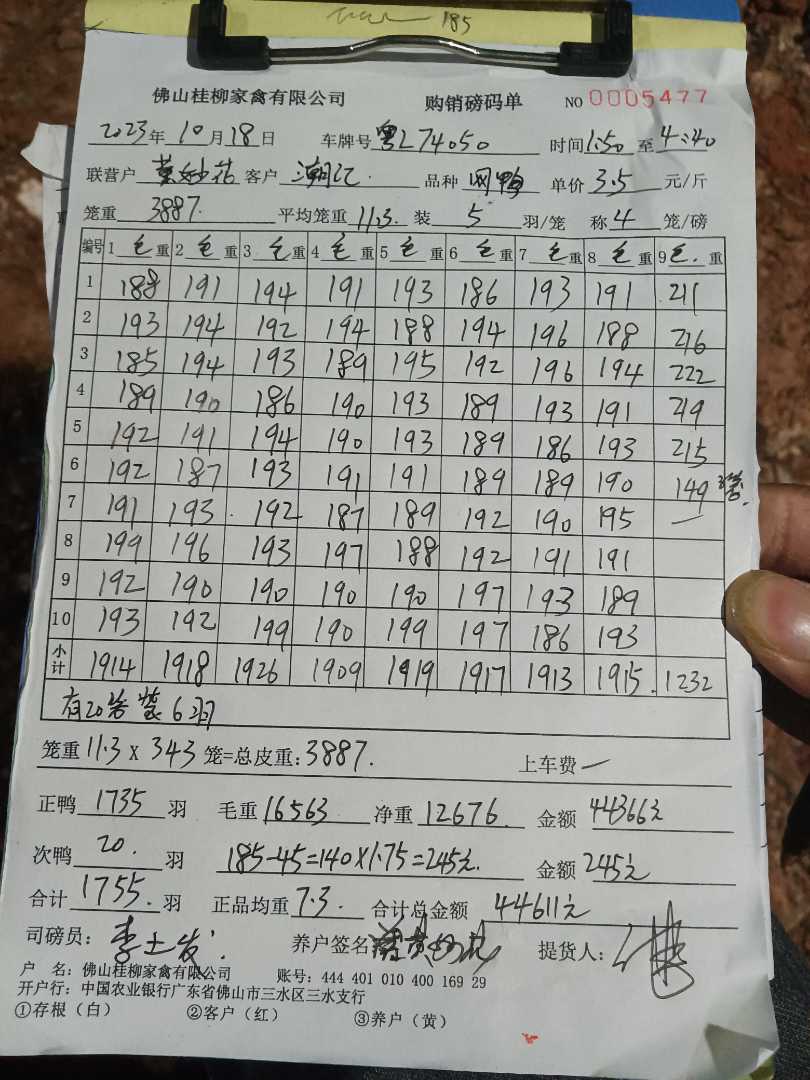 185
佛山桂柳家禽有限公司 购销磅码单 NO 0005477
2023年10月18日 车牌号 粤L74050 时间1:50至4:40
联营户 花 客户 湖江 品种 网鸭 单价 3.5 元/斤
笼重 3887. 平均笼重 11.3 装 5 羽/笼 称 4 笼/磅
编号 1 毛 重 2 毛 重 3 毛 重 4 毛 重 5 毛 重 6 毛 重 7 毛 重 8 毛 重 9 毛. 重
1 188 191 194 191 193 186 193 191 211
2 193 194 192 194 188 194 196 188 216
3 185 194 193 189 195 192 196 194 222
4 189 190 186 190 193 189 193 191 219
5 192 191 194 190 193 189 186 193 215
6 192 187 193 191 191 189 189 190 149 3笼.
7 191 193 192 187 189 192 190 195 —
8 199 196 193 197 188 192 191 191
9 192 190 190 190 190 197 193 189
10 193 192 199 190 199 197 186 193
小计 1914 1918 1926 1909 1919 1917 1913 1915 1232
有20笼装6羽
笼重 11.3 x 343 笼=总皮重: 3887. 上车费 —
正鸭 1735 羽 毛重 16563 净重 12676 金额 44366元
次鸭 20. 羽 185-45=140X1.75=245元. 金额 245元
合计 1755. 羽 正品均重 7.3. 合计总金额 44611元
司磅员: 李土发. 养户签名 提货人:
户 名: 佛山桂柳家禽有限公司 账号: 444 401 010 400 169 29
开户行: 中国农业银行广东省佛山市三水区三水支行
①存根（白） ②客户（红） ③养户（黄）